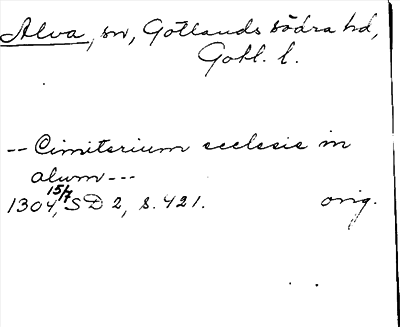 Alva, sn, Gotlands södra hd,
Gotl. l.
-- Cimiterium ecclesie in
alum ---
1304 15/7, SD 2, s. 421. orig.